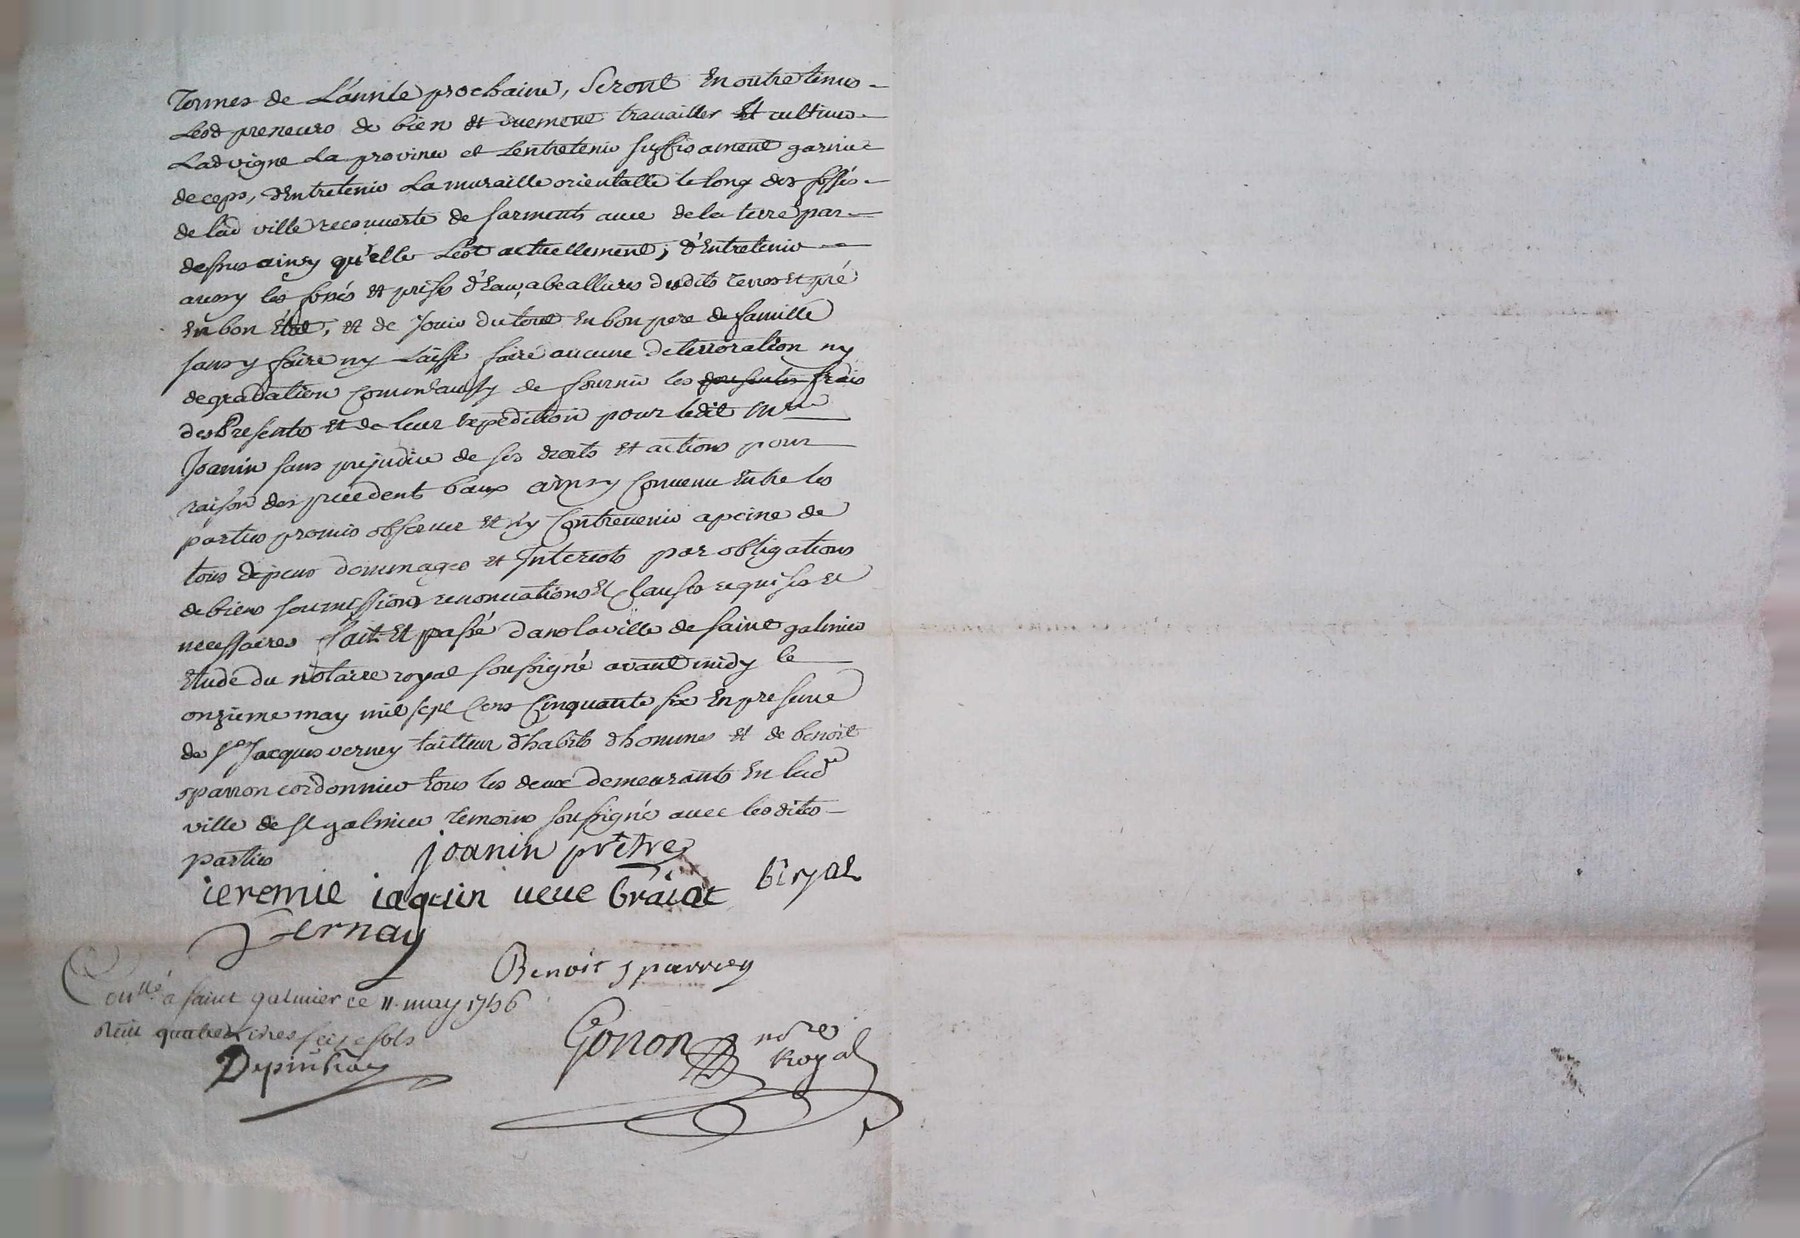 Termes de L'année prochaine, Seront En outre tenus
Lesd preneurs de bien et duement travailler Et cultiver
Lad vigne La proviner et Lentretenir suffisament garnie
de ceps, d'Entretenir La muraille orientalle le long des fossés
de lad ville recouverte de sarments avec de la terre par
dessus ainsy qu'elle Lest actuellement, d'Entretenir
aussy les fossés et prises d'Eau, abeallieres desdits terres et pré
En bon Etat, et de Jouir du tout En bon pere de famille
sans y faire ny Laisser faire aucune deterioration ny
degradation comm'aussy de fournir les frais
des Presentes et de leur expedition pour ledit Mre
Joanin sans prejudice de ses droits et actions pour
raison des precedent baux ainsy Convenu Entre les
parties promis observer et n'y Contrevenir a peine de
tous depens dommages et Interests par obligations
de biens soumissions renonciations et Clauses requises et
necessaires fait Et passé dans la ville de saint galmier
Etude du notaire royal soussigné avant midy le
onzieme may mil sept Cens Cinquante six En presence
de Sr Jacques verney tailleur d'habits d'hommes et de benoit
sparron cordonnier tous les deux demeurants En lad
ville de st galmier temoins soussigné avec les dites
parties
Joanin prêtre
ieremie iaquin veve braiat
Vernay
Benoit sparron
Conllé à saint galmier ce 11 may 1756
Reçu quatre livres seize sols
Gonon nore
Royal